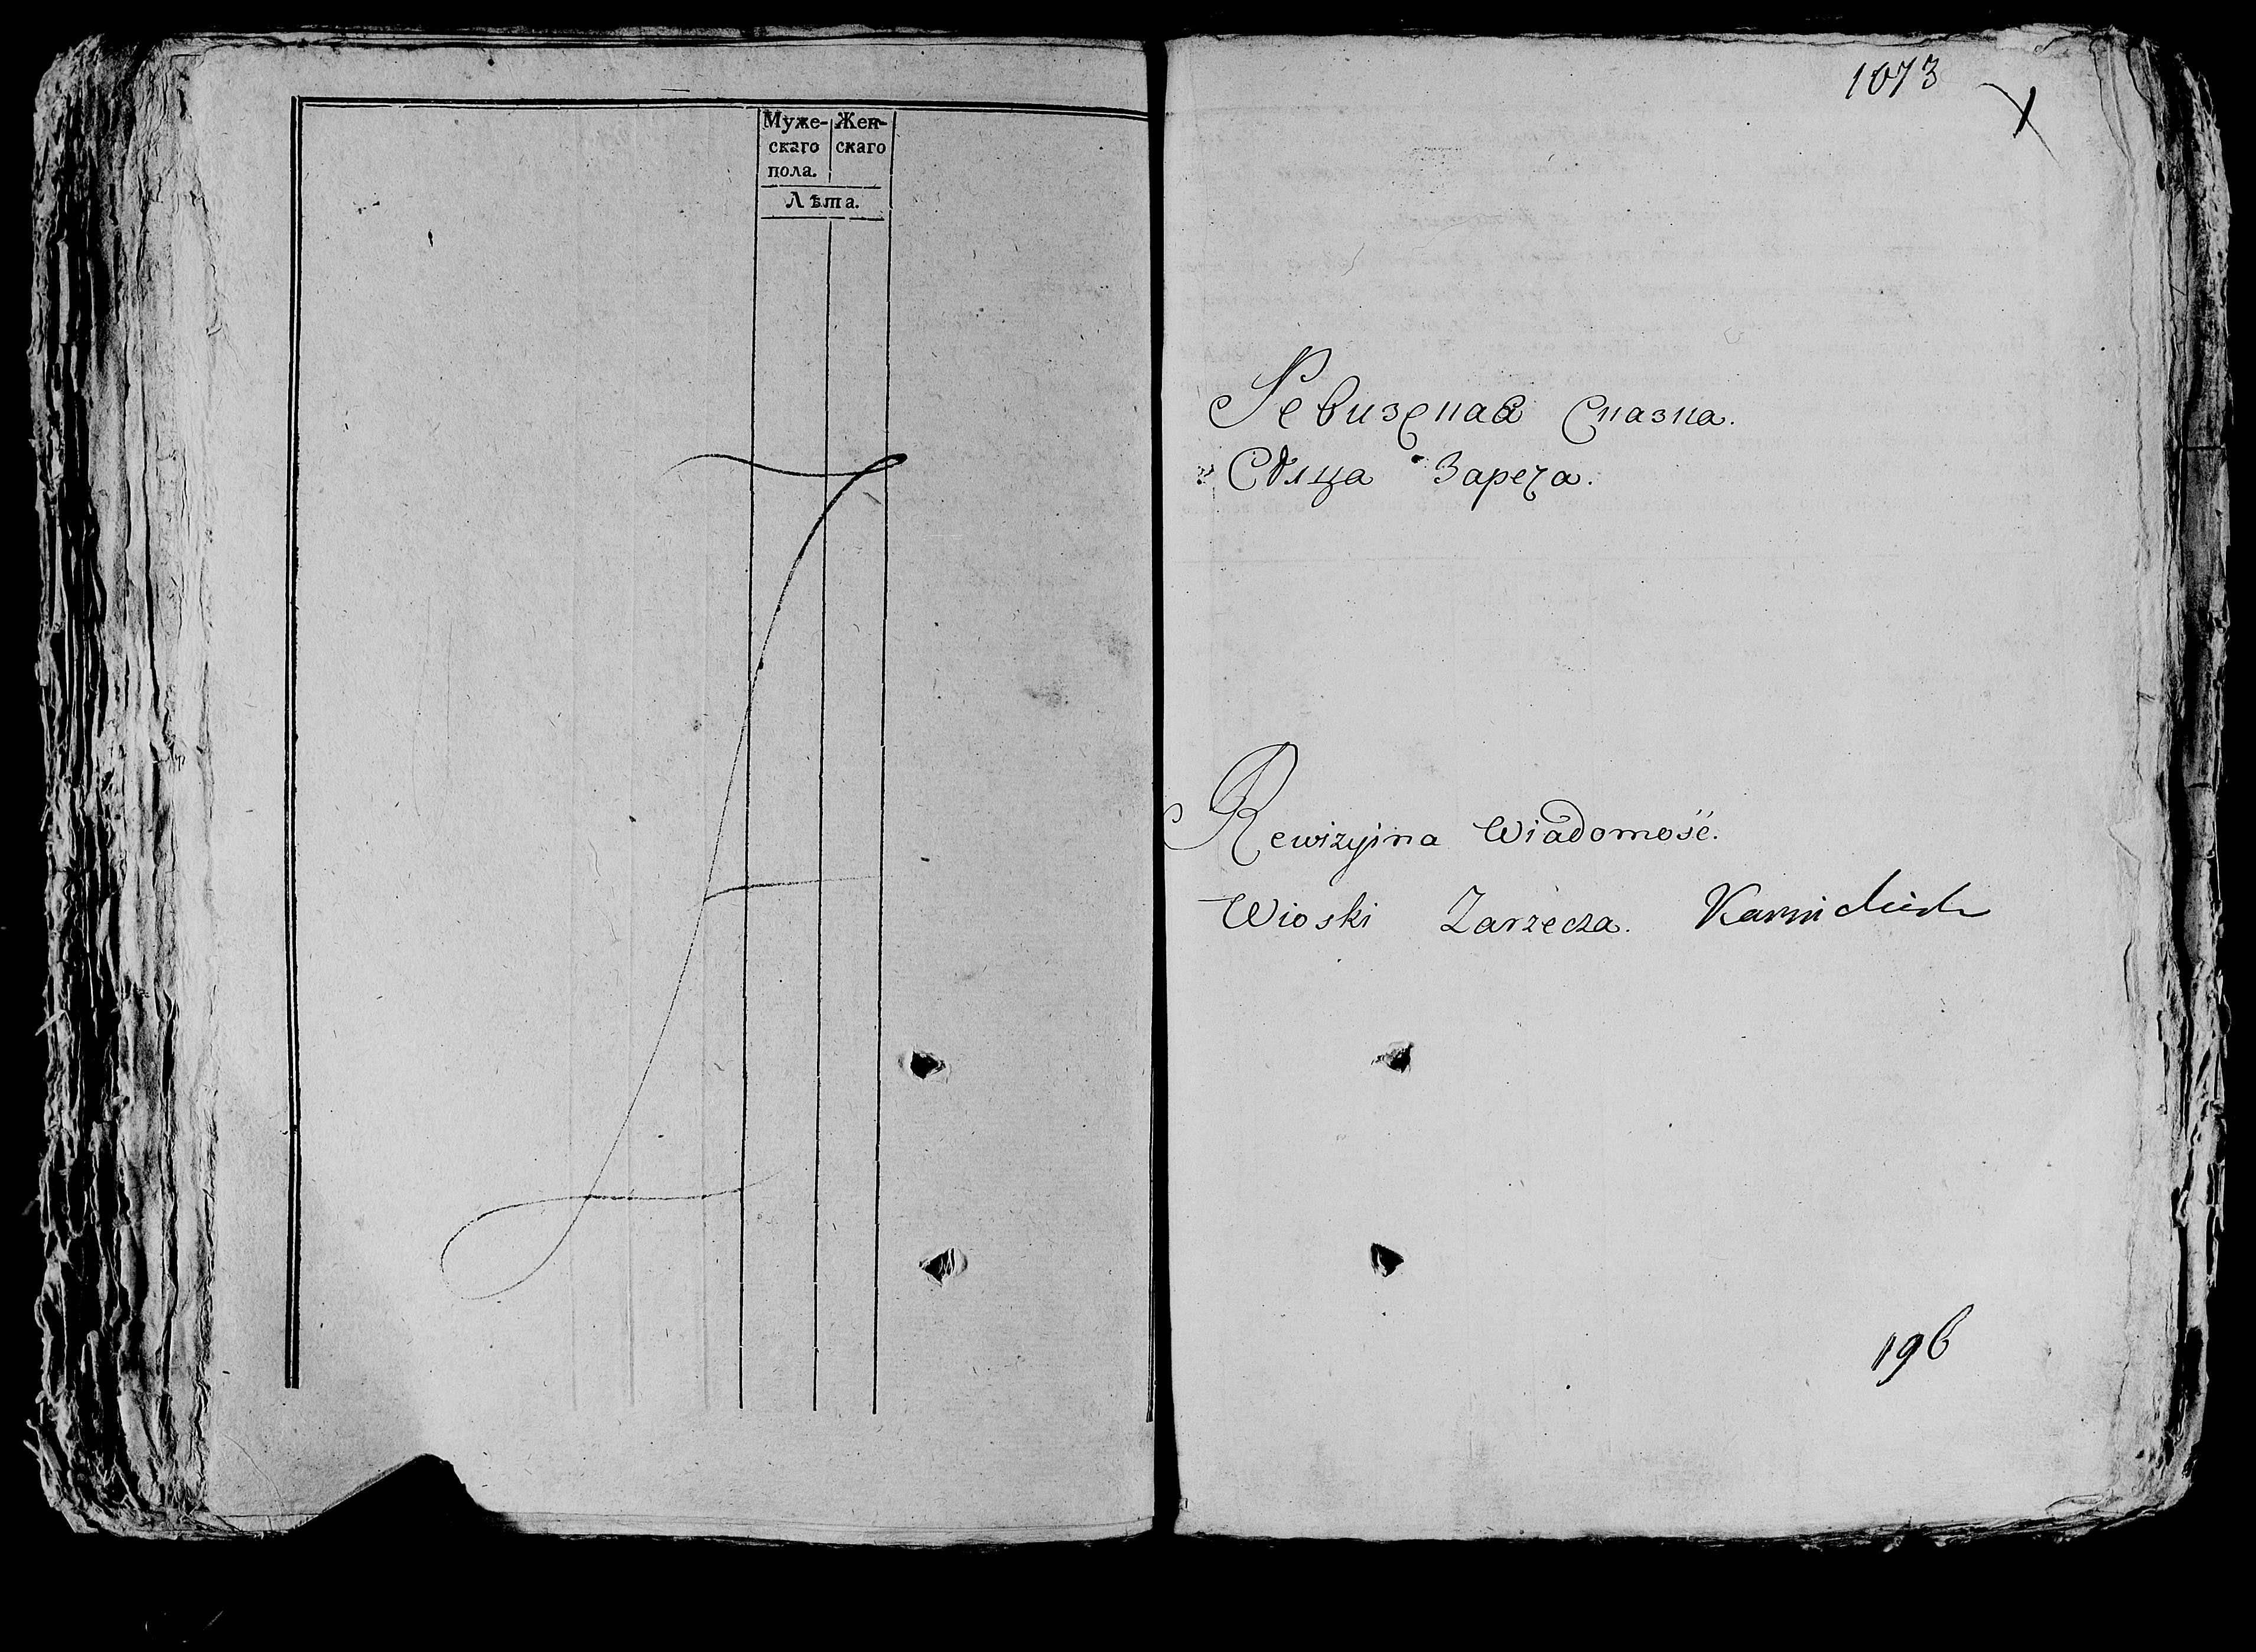 Муже- Жен-
скаго скаго
пола.
Лѣта.
1073
Ревизская Сказка.
Сѣлца Зареча.
Rewizyina Wiadomość.
Wioski Zarzecza.
196